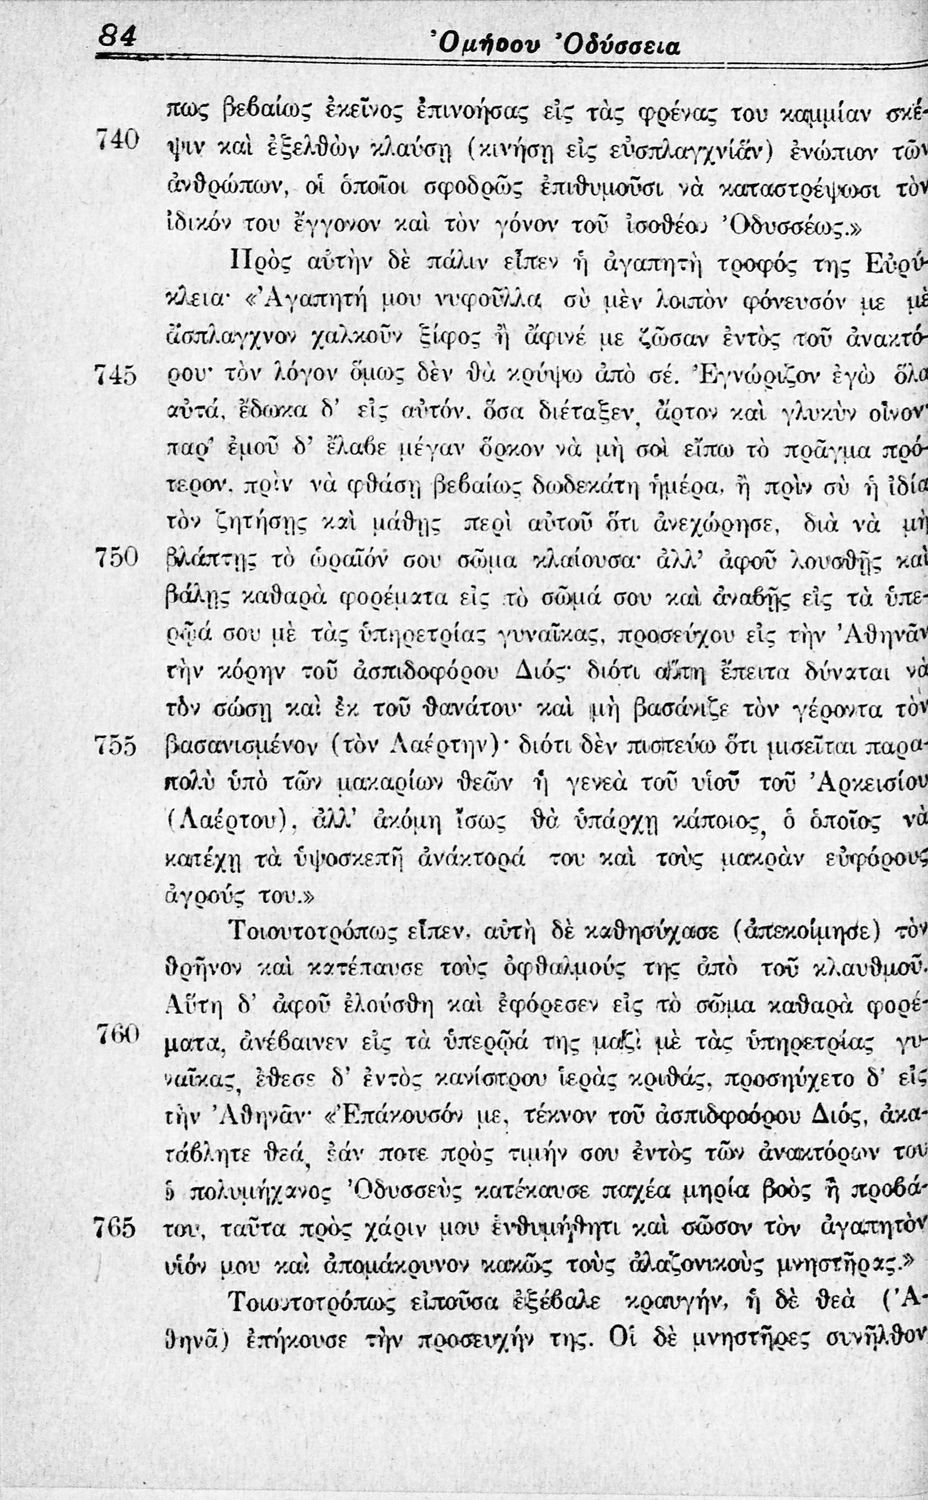 84 Ὁμήρου Ὀδύσσεια
πως βεβαίως ἐκεῖνος ἐπινοήσας εἰς τὰς φρένας του καμμίαν σκέ-
740 ψιν καὶ ἐξελθὼν κλαύσῃ (κινήσῃ εἰς εὐσπλαγχνίαν) ἐνώπιον τῶν
ἀνθρώπων, οἱ ὁποῖοι σφοδρῶς ἐπιθυμοῦσι νὰ καταστρέψωσι τὸν
ἰδικόν του ἔγγονον καὶ τὸν γόνον τοῦ ἰσοθέου Ὀδυσσέως.»
Πρὸς αὐτὴν δὲ πάλιν εἶπεν ἡ ἀγαπητὴ τροφός της Εὐρύ-
κλεια· «Ἀγαπητή μου νυφοῦλλα, σὺ μὲν λοιπὸν φόνευσόν με μὲ
ἄσπλαγχνον χαλκοῦν ξίφος ἢ ἄφινέ με ζῶσαν ἐντὸς τοῦ ἀνακτό-
745 ρου· τὸν λόγον ὅμως δὲν θὰ κρύψω ἀπὸ σέ. Ἐγνώριζον ἐγὼ ὅλα
αὐτά, ἔδωκα δ' εἰς αὐτόν, ὅσα διέταξεν, ἄρτον καὶ γλυκὺν οἶνον·
παρ' ἐμοῦ δ' ἔλαβε μέγαν ὅρκον νὰ μὴ σοὶ εἴπω τὸ πρᾶγμα πρό-
τερον, πρὶν νὰ φθάσῃ βεβαίως δωδεκάτη ἡμέρα, ἢ πρὶν σὺ ἡ ἰδία
τὸν ζητήσῃς καὶ μάθῃς περὶ αὐτοῦ ὅτι ἀνεχώρησε, διὰ νὰ μὴ
750 βλάπτῃς τὸ ὡραῖόν σου σῶμα κλαίουσα· ἀλλ' ἀφοῦ λουσθῇς καὶ
βάλῃς καθαρὰ φορέματα εἰς τὸ σῶμά σου καὶ ἀναβῇς εἰς τὰ ὑπε-
ρῷά σου μὲ τὰς ὑπηρετρίας γυναῖκας, προσεύχου εἰς τὴν Ἀθηνᾶν
τὴν κόρην τοῦ ἀσπιδοφόρου Διός· διότι αὕτη ἔπειτα δύναται νὰ
τὸν σώσῃ καὶ ἐκ τοῦ θανάτου· καὶ μὴ βασάνιζε τὸν γέροντα τὸν
755 βασανισμένον (τὸν Λαέρτην)· διότι δὲν πιστεύω ὅτι μισεῖται παρα-
πολὺ ὑπὸ τῶν μακαρίων θεῶν ἡ γενεὰ τοῦ υἱοῦ τοῦ Ἀρκεισίου
(Λαέρτου), ἀλλ' ἀκόμη ἴσως θὰ ὑπάρχῃ κάποιος, ὁ ὁποῖος νὰ
κατέχῃ τὰ ὑψοσκεπῆ ἀνάκτορά του καὶ τοὺς μακρὰν εὐφόρους
ἀγρούς του.»
Τοιουτοτρόπως εἶπεν, αὐτὴ δὲ καθησύχασε (ἀπεκοίμησε) τὸν
θρῆνον καὶ κατέπαυσε τοὺς ὀφθαλμούς της ἀπὸ τοῦ κλαυθμοῦ.
Αὕτη δ' ἀφοῦ ἐλούσθη καὶ ἐφόρεσεν εἰς τὸ σῶμα καθαρὰ φορέ-
760 ματα, ἀνέβαινεν εἰς τὰ ὑπερῷά της μαζὶ μὲ τὰς ὑπηρετρίας γυ-
ναῖκας, ἔθεσε δ' ἐντὸς κανίστρου ἱερὰς κριθάς, προσηύχετο δ' εἰς
τὴν Ἀθηνᾶν· «Ἐπάκουσόν με, τέκνον τοῦ ἀσπιδφοόρου Διός, ἀκα-
τάβλητε θεά, ἐάν ποτε πρὸς τιμήν σου ἐντὸς τῶν ἀνακτόρων του
ὁ πολυμήχανος Ὀδυσσεὺς κατέκαυσε παχέα μηρία βοὸς ἢ προβά-
765 του, ταῦτα πρὸς χάριν μου ἐνθυμήθητι καὶ σῶσον τὸν ἀγαπητὸν
υἱόν μου καὶ ἀπομάκρυνον κακῶς τοὺς ἀλαζονικοὺς μνηστῆρας.»
Τοιουτοτρόπως εἰποῦσα ἐξέβαλε κραυγήν, ἡ δὲ θεὰ (Ἀ-
θηνᾶ) ἐπήκουσε τὴν προσευχήν της. Οἱ δὲ μνηστῆρες συνῆλθον